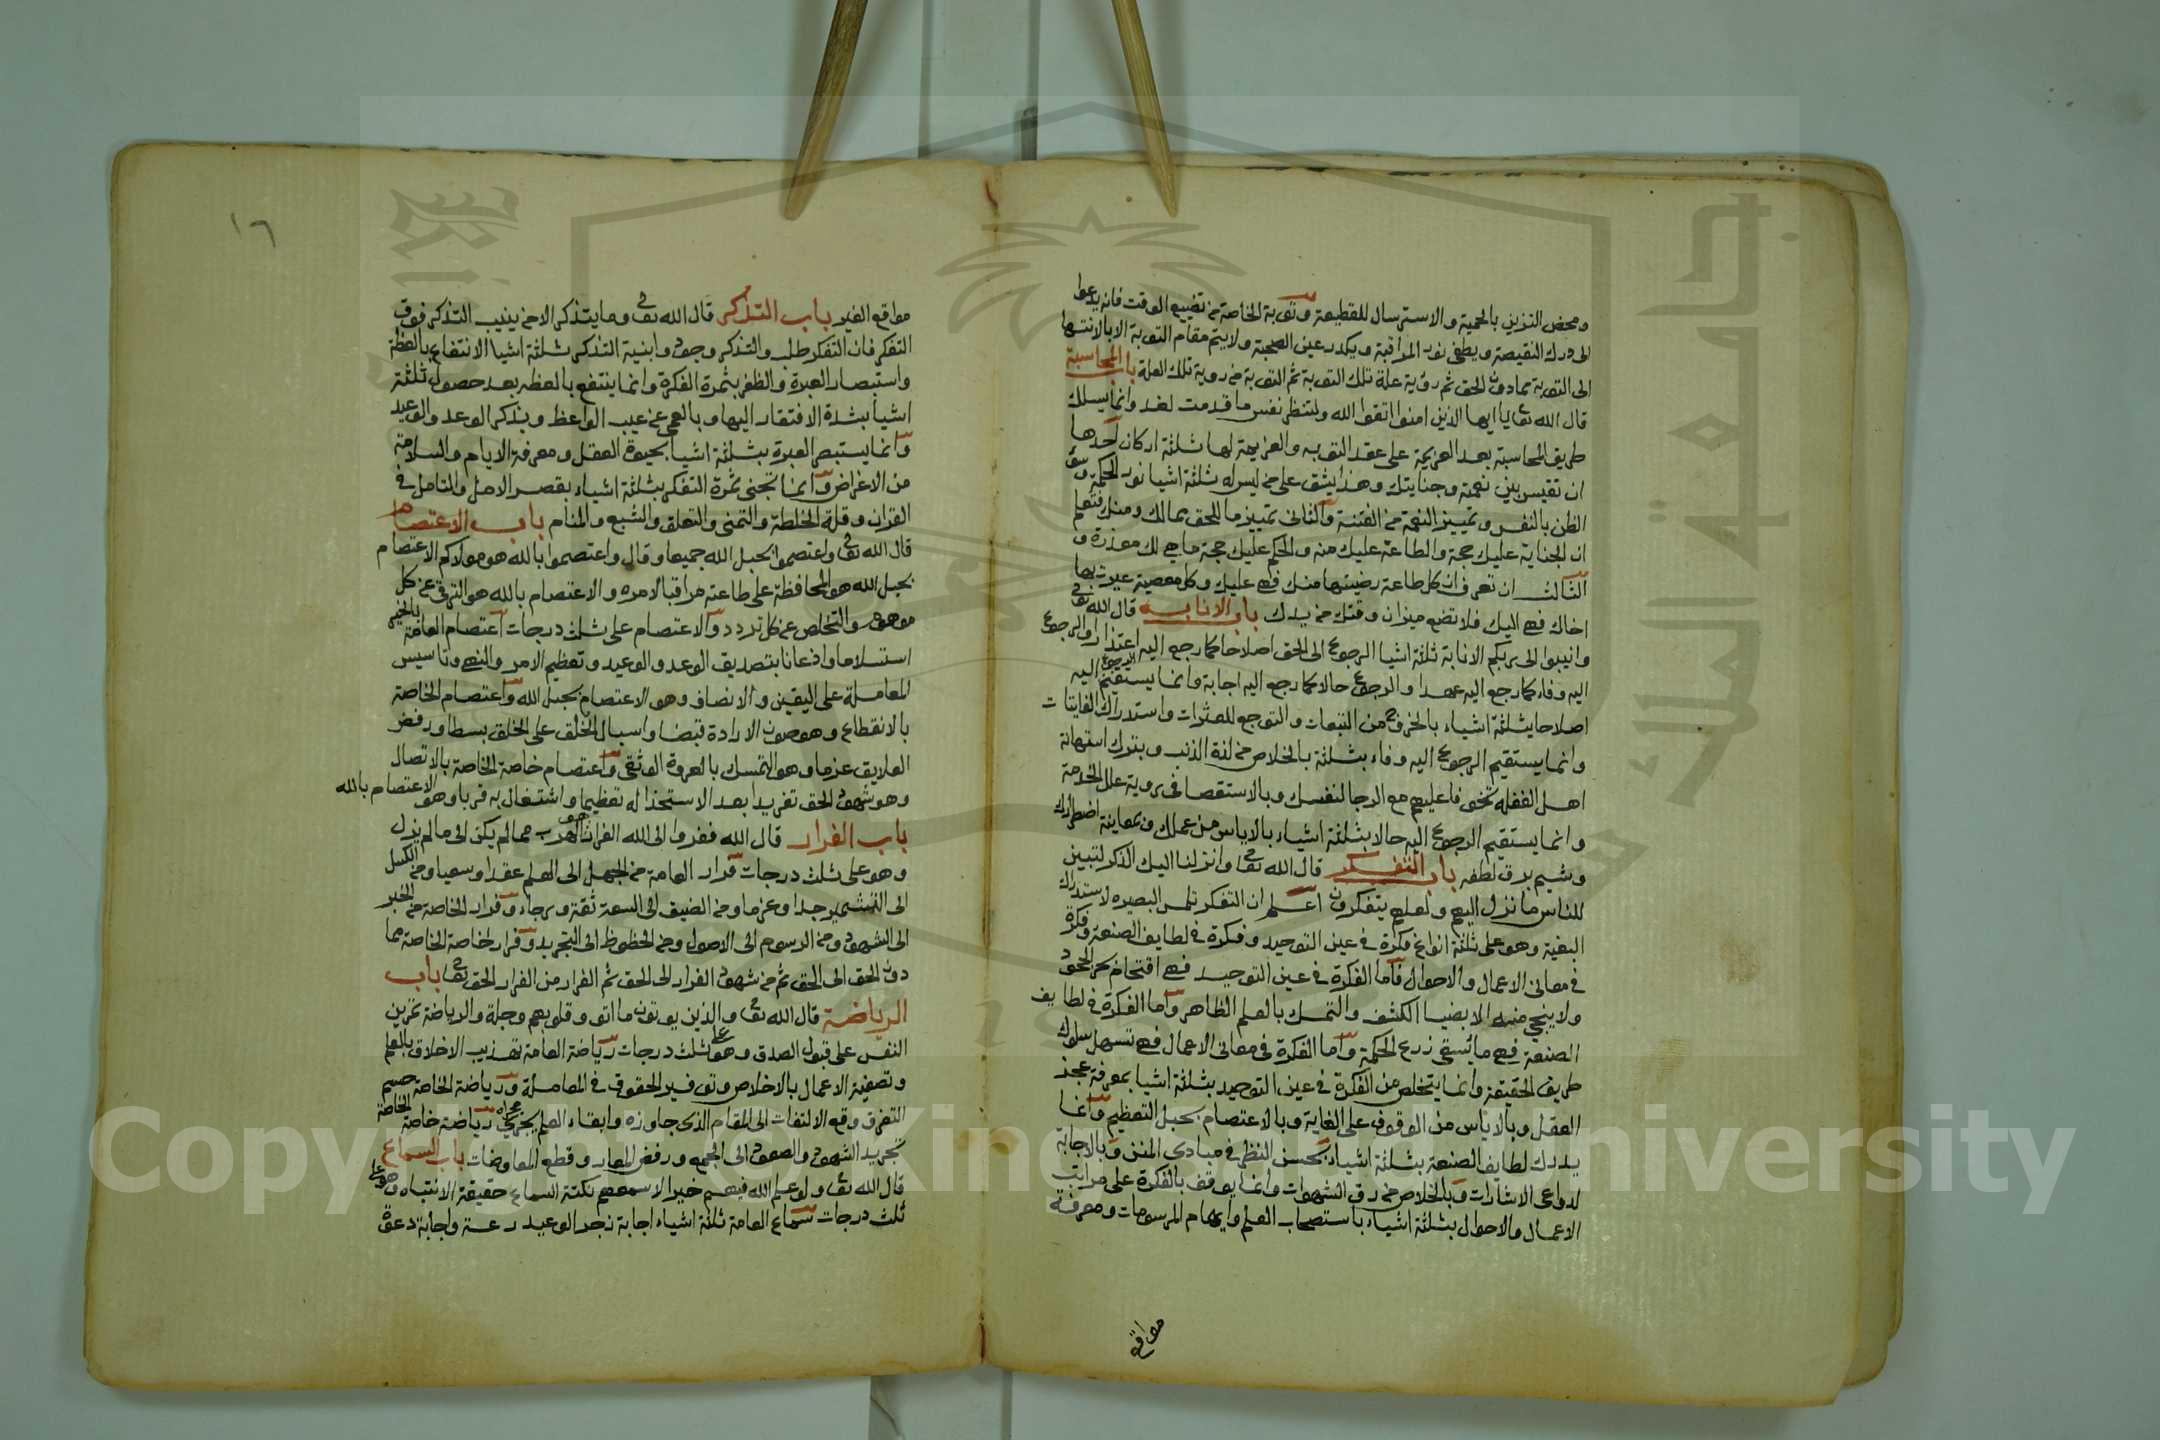 ومحض التزين بالحمية والاسترسال للقطيعة وتوبة الخاصة من تضييع الوقت فانه يدعوا
الى درك النقيصة ويطفى نور المراقبة ويكدر عين الصحبة ولا يتم مقام التوبة الا بالانتها
الى التوبة مما دون الحق ثم رؤية علة تلك التوبة ثم التوبة من روية تلك العلة باب المحاسبة
قال الله تعالى يا ايها الذين امنوا اتقوا الله ولتنظر نفس ما قدمت لغد وانما يسلك
طريق المحاسبة بعد العزيمة على عقد التوبه والعزيمة لها ثلثة اركان احدها
ان تقيس بين نعمته وجنايتك وهذا يشق على من ليس له ثلثة اشيا نور الحكمة وسؤ
الظن بالنفس وتمييز النعمة من الفتنة والثانى تمييز ما للحق مما لك ومنك فتعلم
ان الجناية عليك حجة والطاعة عليك منه والحكم عليك حجة ما هي لك معذرة و
الثالث ان تعرف ان كل طاعة رضيتها منك فهى عليك وكل معصية عيرت بها
اخاك فهى اليك فلا تضع ميزان وقتك من يدك باب الانابه قال الله تعالى
وانيبوا الى ربكم الانابة ثلثة اشيا الرجوع الى الحق اصلاحا كما رجع اليه اعتذارا والرجوع
اليه وفاء كما رجع اليه عهدا والرجوع حالا كما رجع اليه اجابة وانما يستقيم الرجوع اليه
اصلاحا بثلثة اشياء بالخروج من التبعات والتوجع للعثرات واستدراك الفايتات
وانما يستقيم الرجوع اليه وفاء بثلثة بالخلاص من لذة الذنب وبترك استهانة
اهل الغفله تخوفا عليهم مع الرجا لنفسك وبالاستقصا فى روية علل الخدمة
وانما يستقيم الرجوع اليه حالا بثلثة اشياء بالاياس من عملك وبمعاينة اضطرارك
وشيم برق لطفه باب التفكر قال الله تعالى وانزلنا اليك الذكر لتبين
للناس ما نزل اليهم ولعلهم يتفكرون اعلم ان التفكر تلمس البصيره لاستدراك
البغية وهو على ثلثة انواع فكرة فى عين التوحيد وفكرة فى لطايف الصنعة وفكرة
فى معانى الاعمال والاحوال فاما الفكرة فى عين التوحيد فهى اقتحام بحر الجحود
ولا ينجي منه الا بضيا الكشف والتمسك بالعلم الظاهر واما الفكرة فى لطايف
الصنعة فهى ما يسقى زرع الحكمة واما الفكرة فى معانى الاعمال فهى تسهل سلوك
طريق الحقيقة وانما يتخلص من الفكرة فى عين التوحيد بثلثة اشيا بمعرفة عجز
العقل وبالاياس من الوقوف على الغاية وبالاعتصام بحبل التعظيم وانما
يدرك لطايف الصنعة بثلثة اشياء بحسن النظر فى مبادى المنن وبالاجابة
لدواعى الاشارات وبالخلاص من رق الشهوات وانما يوقف بالفكرة على مراتب
الاعمال والاحوال بثلثة اشياء باستصحاب العلم وايهام المرسومات ومعرفة
مواقع
١٦
مواقع الغير باب التذكر قال الله تعالى وما يتذكر الا من ينيب التذكر فوق
التفكر فان التفكر طلب والتذكر وجود وابنية التذكر ثلثة اشيا الانتفاع بالعظة
واستبصار العبرة والظفر بثمرة الفكرة وانما ينتفع بالعظه بعد حصول ثلثة
اشيا بشدة الافتقار اليها وبالعمى عن عيب الواعظ وبذكر الوعد والوعيد
وانما يستبصر العبرة بثلثة اشيا بحيوة العقل ومعرفة الايام والسلامة
من الاغراض وانما تجنى ثمرة التفكر بثلثة اشياء بقصر الامل والتامل فى
القران وقلة الخلطة والتمنى والتعلق والشبع والمنام باب الاعتصام
قال الله تعالى واعتصموا بحبل الله جميعا وقال واعتصموا بالله هو مولاكم الاعتصام
بحبل الله هو المحافظة على طاعته مراقبا لامره والاعتصام بالله هو الترقى عن كل
موهوم والتخلص عن كل تردد والاعتصام على ثلث درجات اعتصام العامة بالخبر
استسلاما واذعانا بتصديق الوعد والوعيد وتعظيم الامر والنهى وتاسيس
المعاملة على اليقين والانصاف وهو الاعتصام بحبل الله واعتصام الخاصة
بالانقطاع وهو صون الارادة قبضا واسبال الخلق على الخلق بسطا ورفض
العلايق عزما وهو التمسك بالعروة الوثقى واعتصام خاصة الخاصة بالاتصال
وهو شهود الحق تفريدا بعد الاستخذا له تعظيما واشتغال به قربا وهو الاعتصام بالله
باب الفرار قال الله ففروا الى الله الفرار هو الهرب مما لم يكن الى ما لم يزل
وهو على ثلث درجات فرار العامة من الجهل الى العلم عقدا وسعيا ومن الكسل
الى التشمير جدا وعزما ومن الضيق الى السعة ثقة ورجاء وفرار الخاصة من الخبر
الى الشهود ومن الرسوم الى الاصول ومن الحظوظ الى التجريد وفرار خاصة الخاصة مما
دون الحق الى الحق ثم من شهود الفرار الى الحق ثم الفرار من الفرار الحق تعالى باب
الرياضة قال الله تعالى والذين يوتون ما اتو وقلوبهم وجلة والرياضة تمرين
النفس على قبول الصدق وهو على ثلث درجات رياضة العامة تهذيب الاخلاق بالعلم
وتصفية الاعمال بالاخلاص وتوفير الحقوق فى المعاملة ورياضة الخاصة حسم
التفرق وقطع الالتفات الى المقام الذى جاوزه وابقاء العلم يجرى مجراه رياضة خاصة الخاصة
تجريد الشهود والصعود الى الجمع ورفض المعارض وقطع المعاوضات باب السماع
قال الله تعالى ولو علم الله فيهم خيرا لاسمعهم نكتة السماع حقيقة الانتباه وهو على
ثلث درجات سماع العامة ثلثة اشياء اجابة زجر الوعيد رعة واجابة دعوة
Copyright © King Saud University
جامعة الملك سعود